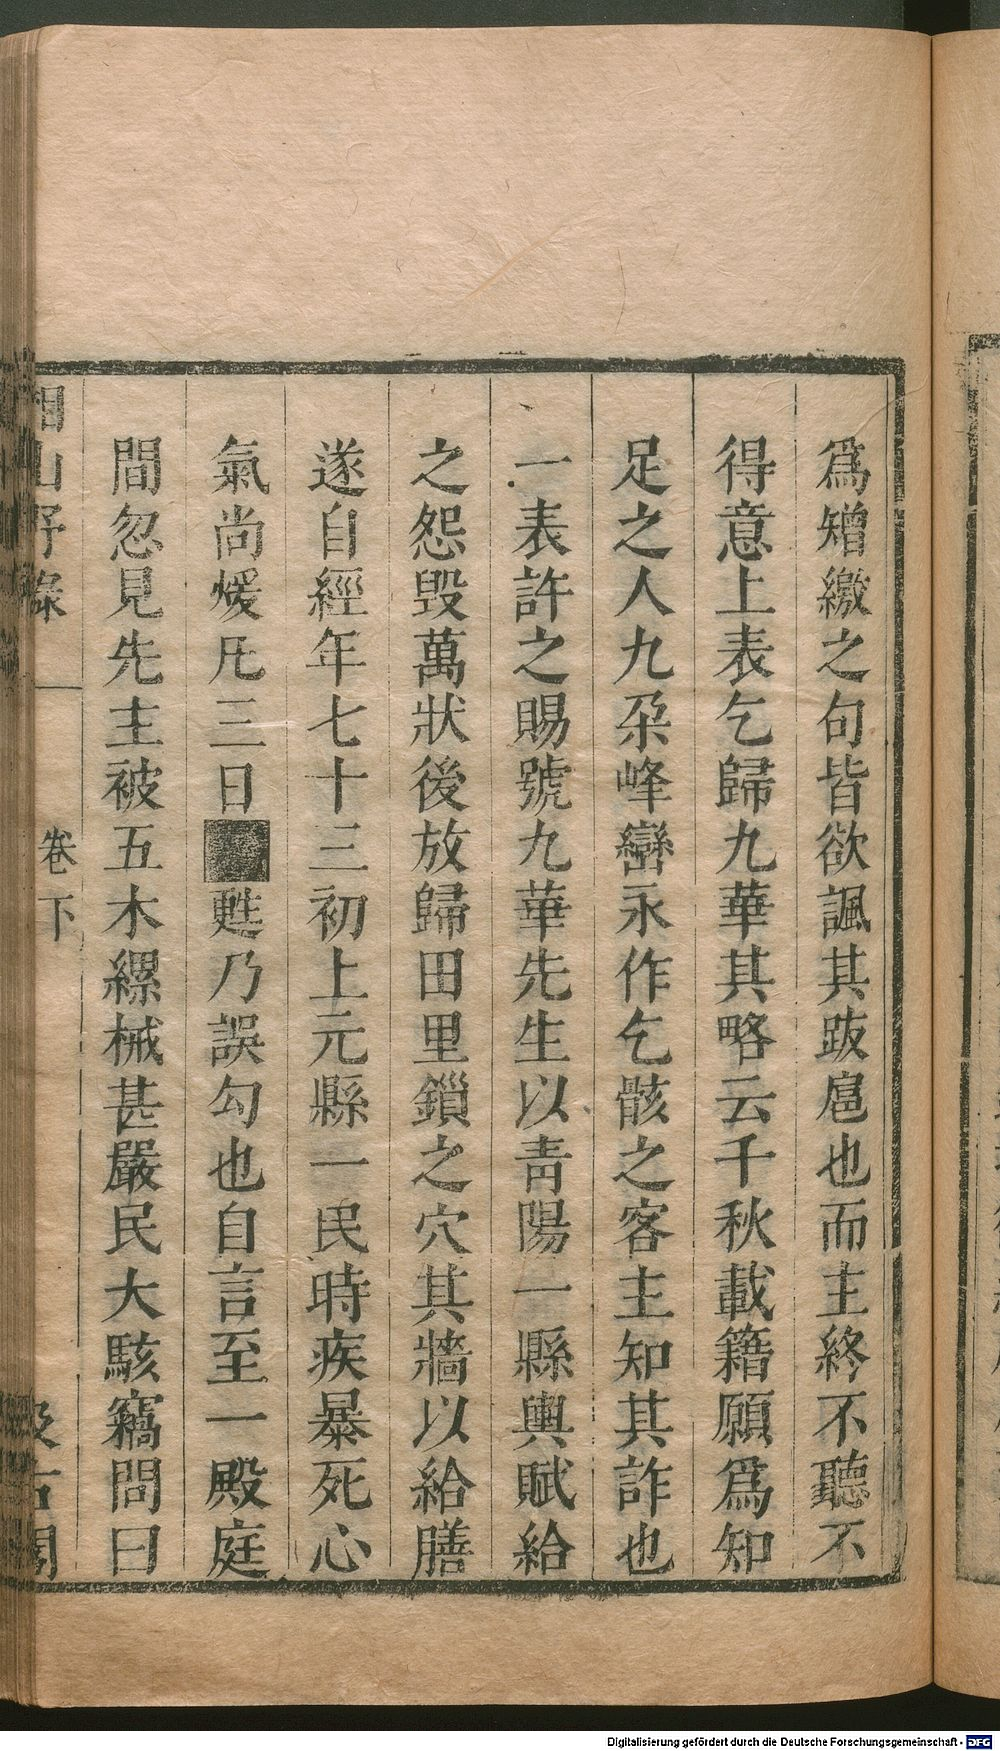 爲矰繳之句皆欲諷其跋扈也而主終不聽不
得意上表乞歸九華其略云千秋載籍願爲知
足之人九朶峰巒永作乞骸之客主知其詐也
一表許之賜號九華先生以靑陽一縣輿賦給
之怨毁萬狀後放歸田里鎖之穴其牆以給膳
遂自經年七十三初上元縣一民時疾暴死心
氣尚煖凡三日甦乃誤勾也自言至一殿庭
間忽見先主被五木縲械甚嚴民大駭竊問曰
湘山野錄 卷下 汲古閣
Digitalisierung gefördert durch die Deutsche Forschungsgemeinschaft - DFG